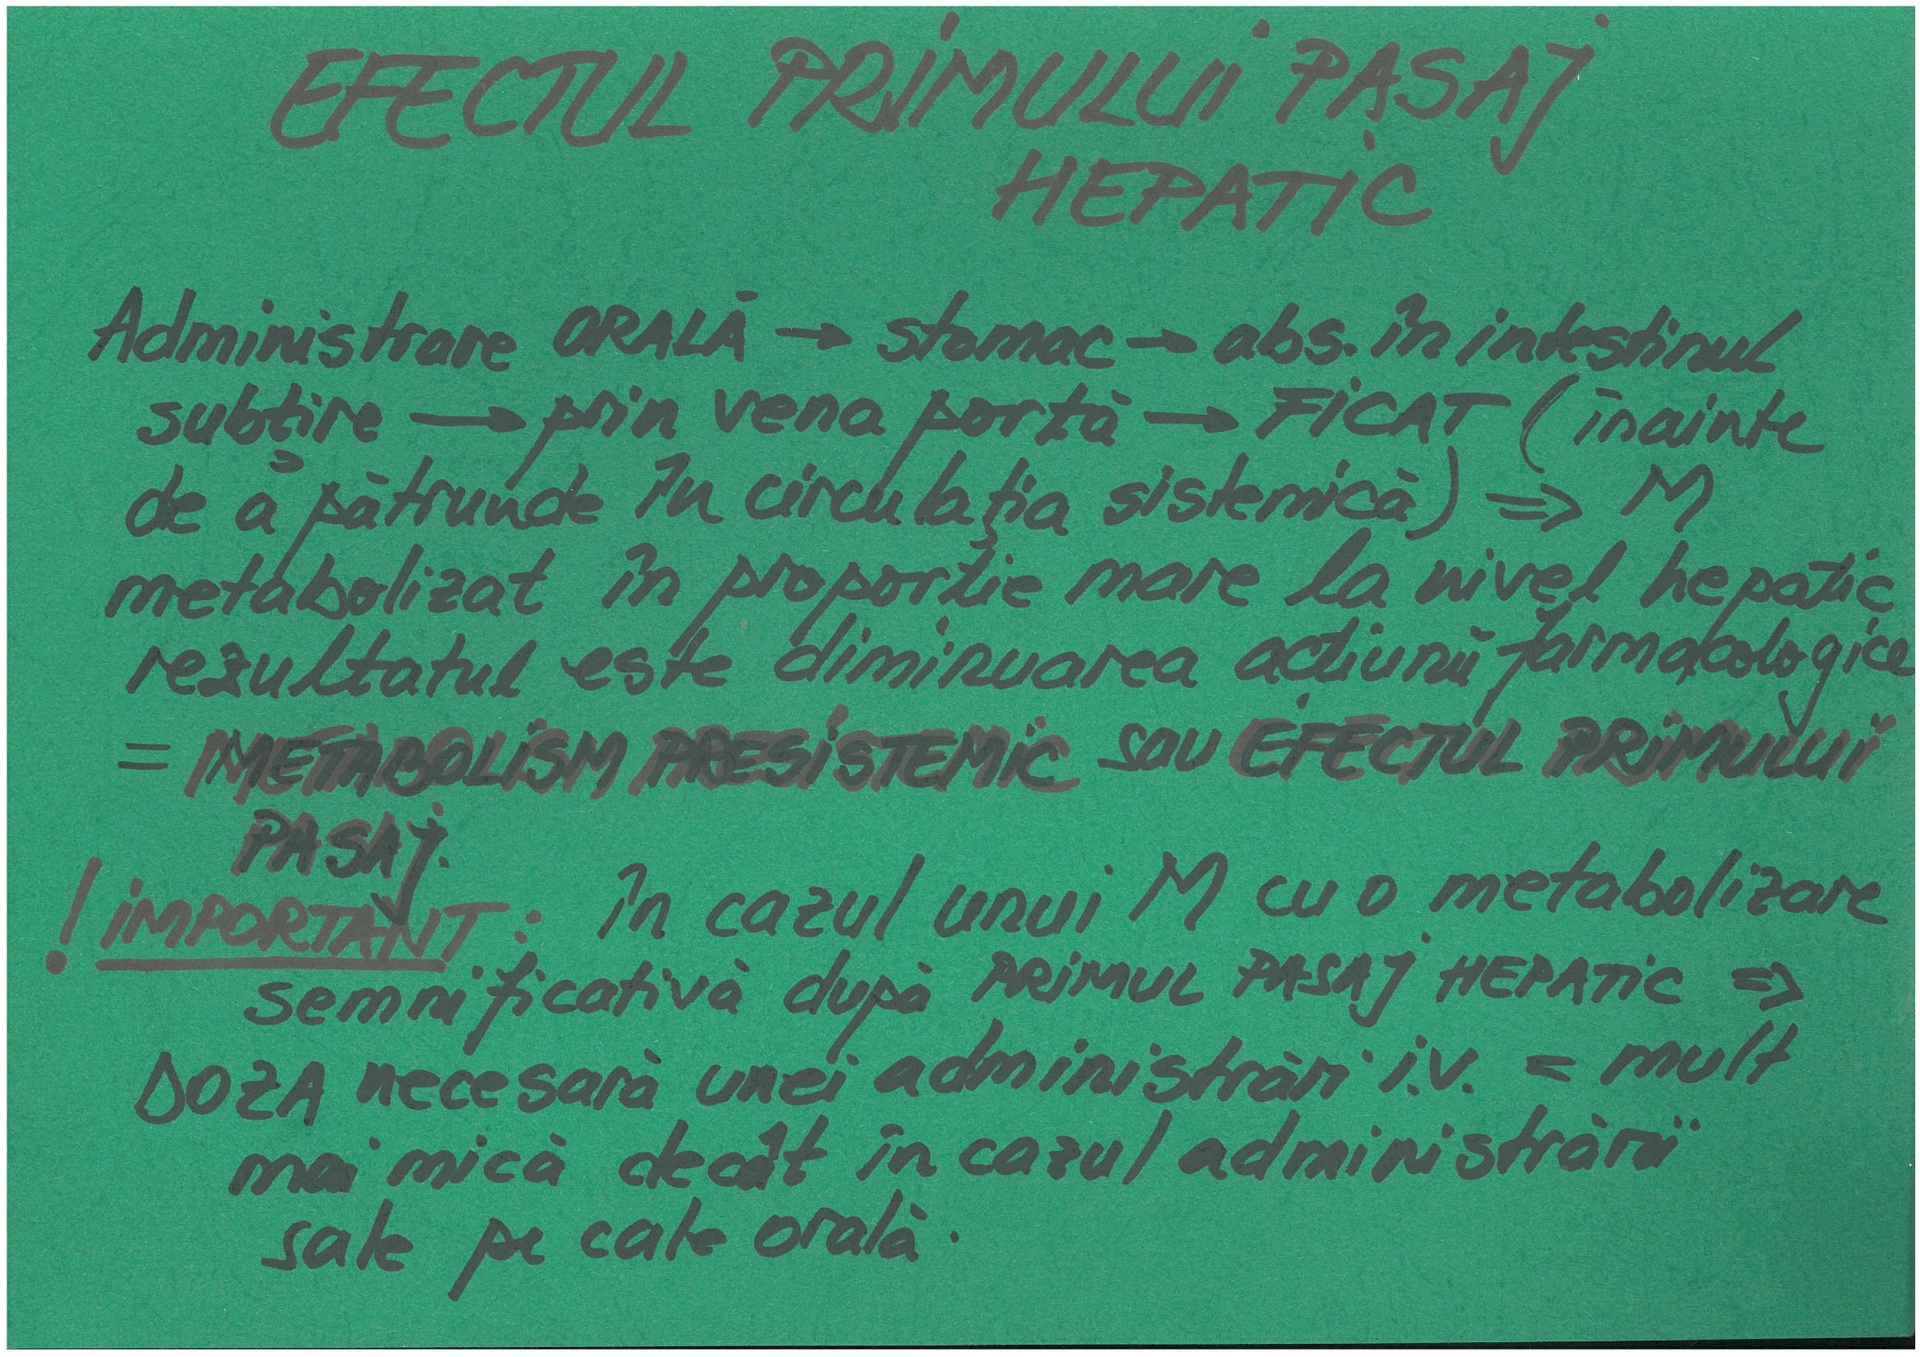 EFECTUL PRIMULUI PASAJ
HEPATIC
Administrare ORALĂ → stomac → abs. în intestinul
subțire → prin vena portă → FICAT (înainte
de a pătrunde în circulația sistemică) => M
metabolizat în proporție mare la nivel hepatic
rezultatul este diminuarea acțiunii farmacologice
= METABOLISM PRESISTEMIC sau EFECTUL PRIMULUI
PASAJ.
! IMPORTANT: în cazul unui M cu o metabolizare
semnificativă după PRIMUL PASAJ HEPATIC =>
DOZA necesară unei administrări i.v. = mult
mai mică decât în cazul administrării
sale pe cale orală.